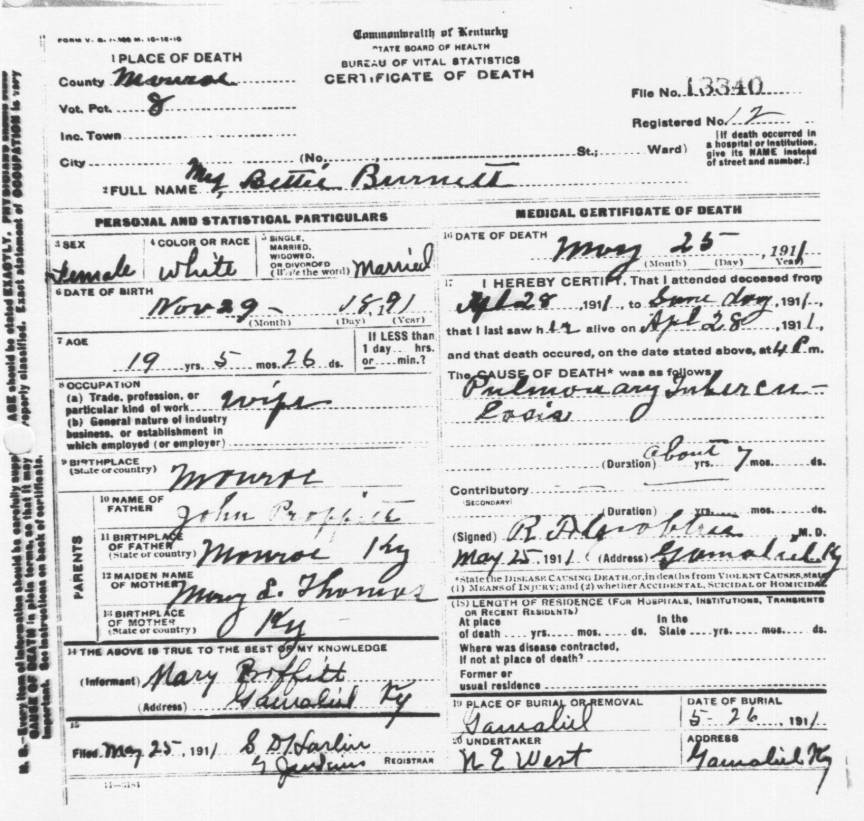 Commonwealth of Kentucky
STATE BOARD OF HEALTH
BUREAU OF VITAL STATISTICS
CERTIFICATE OF DEATH
1 PLACE OF DEATH
County Monroe
Vot. Pct. 8
Inc. Town
City (No. St.; Ward)
File No. 13340
Registered No. 12
[If death occurred in
a hospital or institution,
give its NAME instead
of street and number.]
2 FULL NAME Bettie Burnett
PERSONAL AND STATISTICAL PARTICULARS
3 SEX
Female
4 COLOR OR RACE
White
5 SINGLE,
MARRIED,
WIDOWED,
OR DIVORCED
(Write the word) Married
6 DATE OF BIRTH
Nov 29 - 1891
(Month) (Day) (Year)
7 AGE
19 yrs. 5 mos. 26 ds.
If LESS than
1 day... hrs.
or... min.?
8 OCCUPATION
(a) Trade, profession, or
particular kind of work wife
(b) General nature of industry
business, or establishment in
which employed (or employer)
9 BIRTHPLACE
(State or country) Monroe
PARENTS
10 NAME OF
FATHER John Proffitt
11 BIRTHPLACE
OF FATHER
(State or country) Monroe Ky
12 MAIDEN NAME
OF MOTHER Mary E. Thomas
13 BIRTHPLACE
OF MOTHER
(State or country) Ky
14 THE ABOVE IS TRUE TO THE BEST OF MY KNOWLEDGE
(Informant) Mary Proffitt
(Address) Gamaliel Ky
15
Filed May 25, 1911 S D Harlin
REGISTRAR
MEDICAL CERTIFICATE OF DEATH
16 DATE OF DEATH
May 25, 1911
(Month) (Day) Year)
17 I HEREBY CERTIFY, That I attended deceased from
Apl 28, 1911, to Same day, 1911,
that I last saw her alive on Apl 28, 1911,
and that death occured, on the date stated above, at 4 P.m.
The CAUSE OF DEATH* was as follows
Pulmonary Tubercu-
losis
(Duration) about yrs. 7 mos. ds.
Contributory
(SECONDARY)
(Duration) yrs. mos. ds.
(Signed) M.D.
May 25, 1911 (Address) Gamaliel Ky
*State the DISEASE CAUSING DEATH, or, in deaths from VIOLENT CAUSES, state
(1) MEANS OF INJURY; and (2) whether ACCIDENTAL, SUICIDAL or HOMICIDAL
(18) LENGTH OF RESIDENCE (FOR HOSPITALS, INSTITUTIONS, TRANSIENTS
OR RECENT RESIDENTS)
At place In the
of death yrs. mos. ds. State yrs. mos. ds.
Where was disease contracted,
If not at place of death?
Former or
usual residence
19 PLACE OF BURIAL OR REMOVAL
Gamaliel
DATE OF BURIAL
5-26, 1911
20 UNDERTAKER
N E West
ADDRESS
Gamaliel Ky